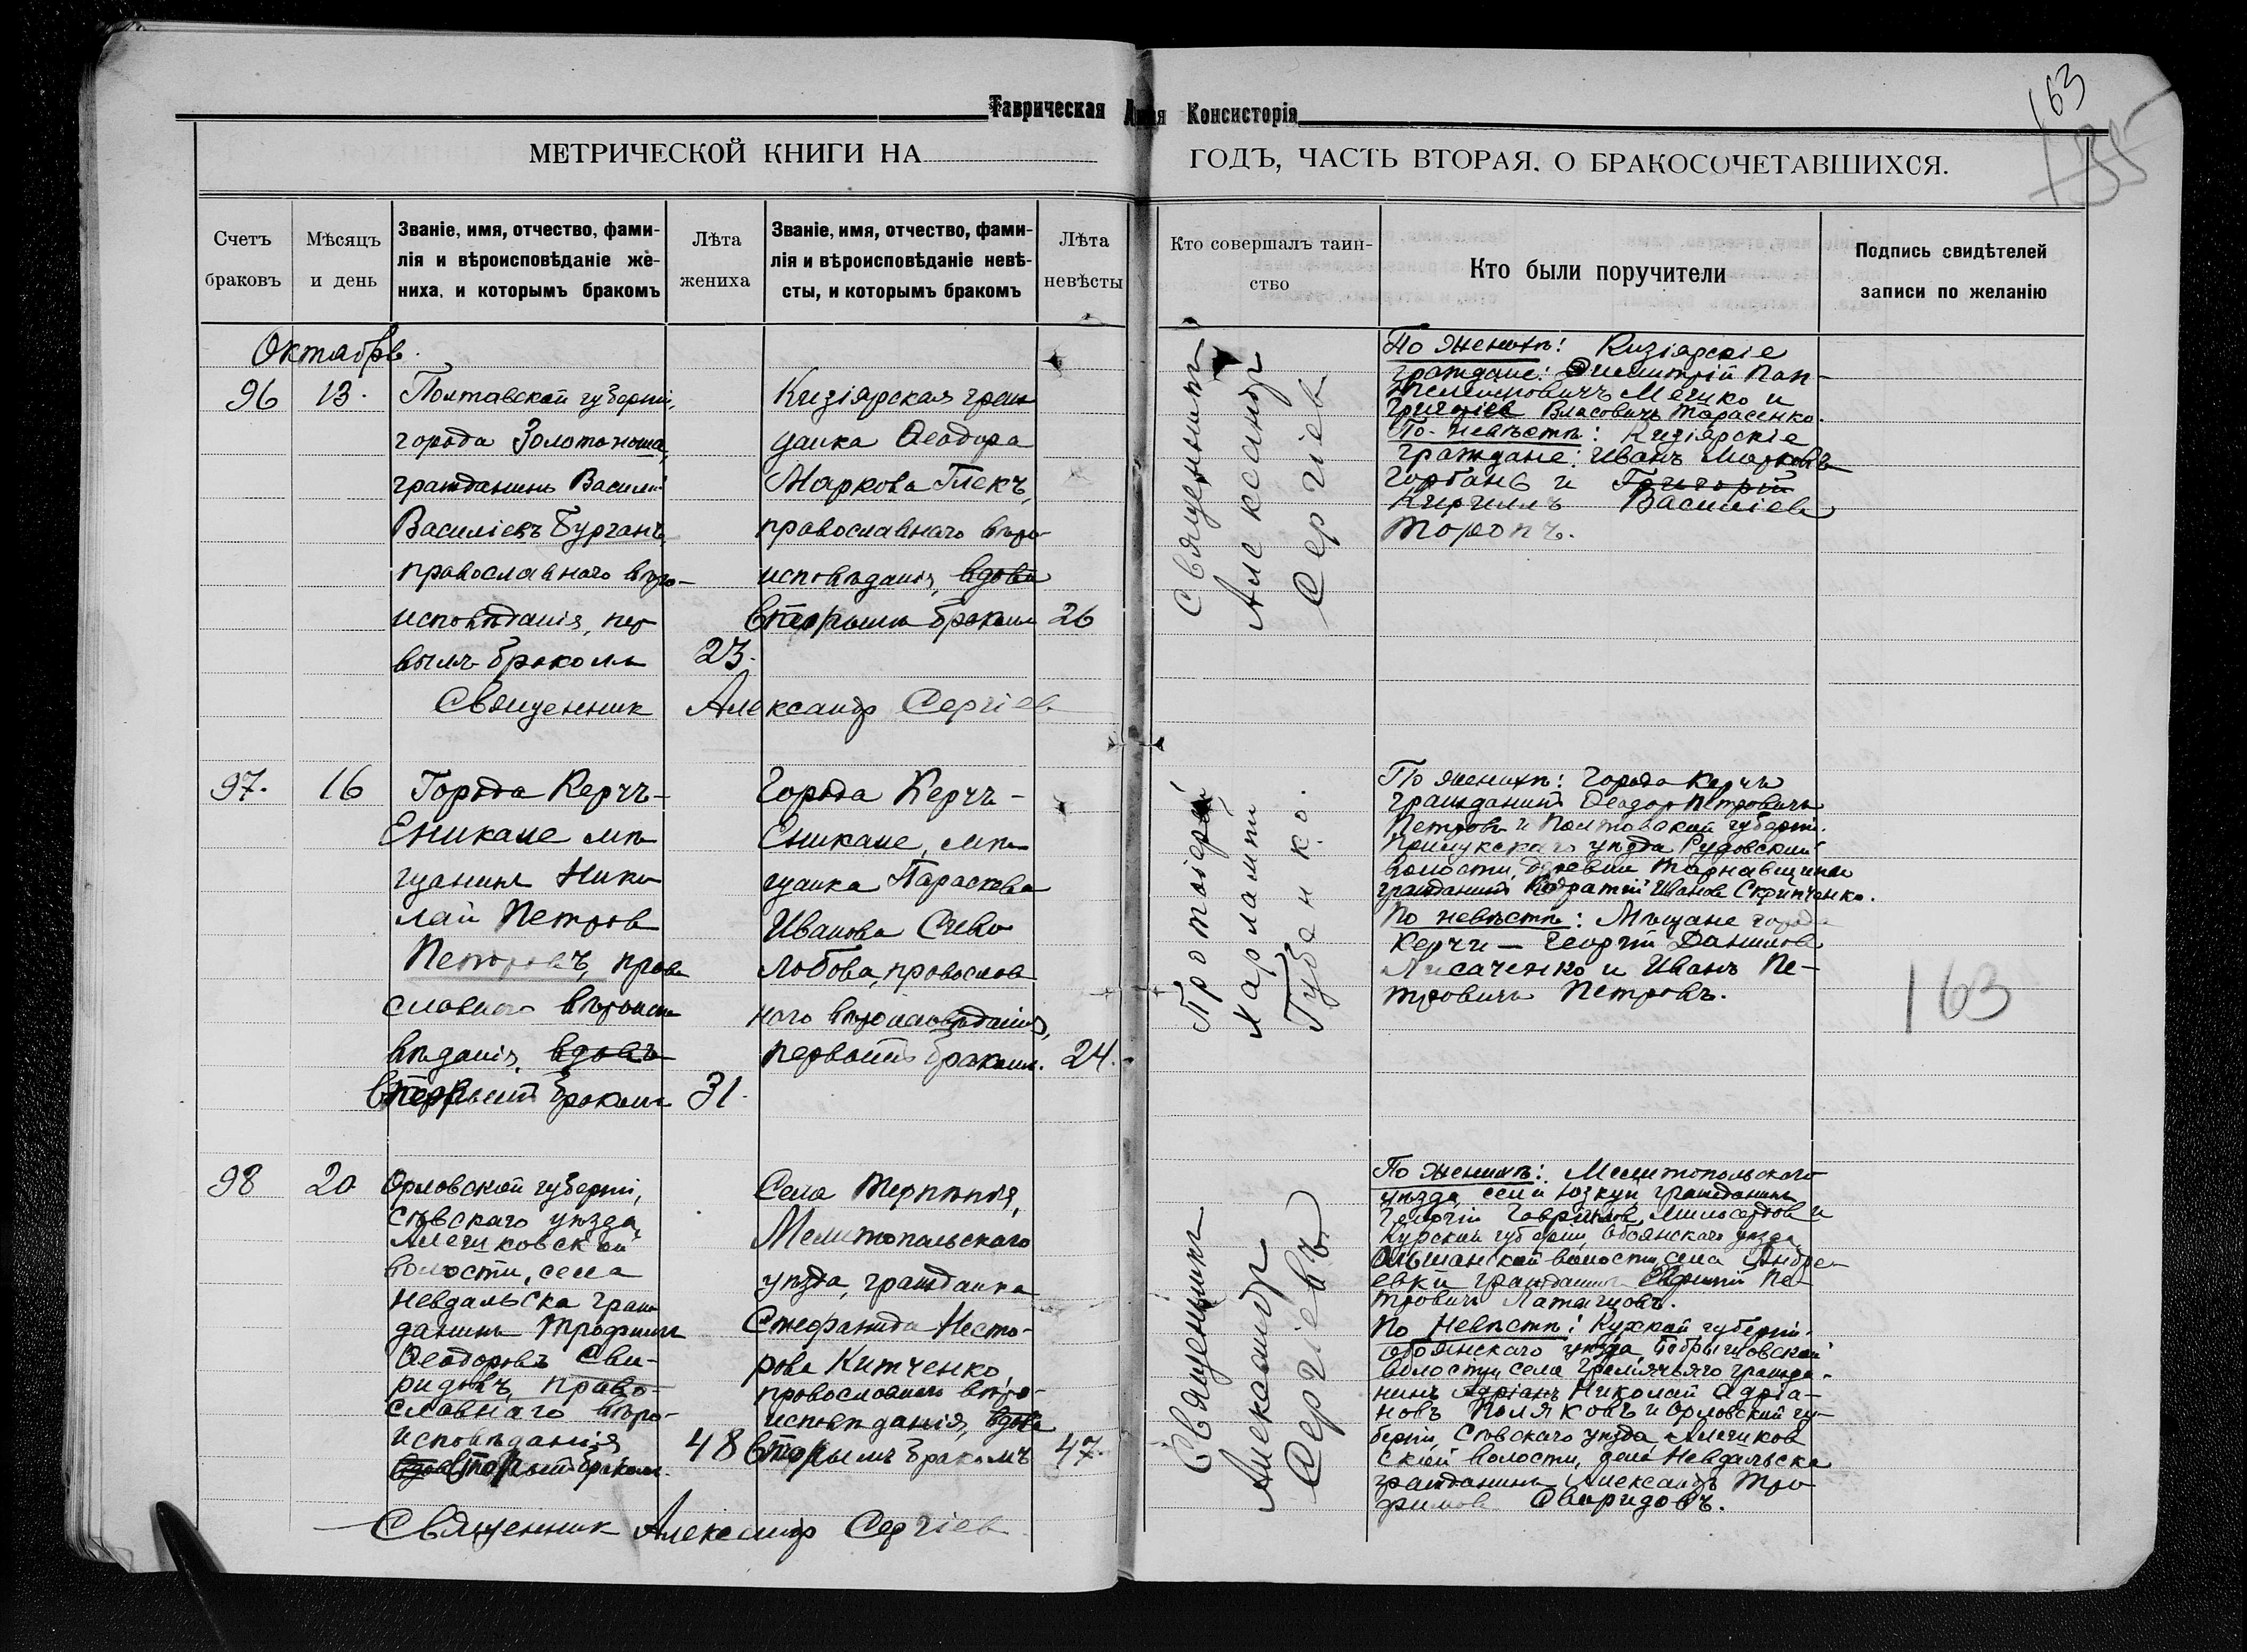 Таврическая Консисторія
163
МЕТРИЧЕСКОЙ КНИГИ НА
ГОДЪ, ЧАСТЬ ВТОРАЯ, О БРАКОСОЧЕТАВШИХСЯ.
Счетъ
браковъ
Мѣсяцъ
и день
Званіе, имя, отчество, фами-
лія и вѣроисповѣданіе же-
ниха, и которымъ бракомъ
Лѣта
жениха
Званіе, имя, отчество, фами-
лія и вѣроисповѣданіе невѣ-
сты, и которымъ бракомъ
Лѣта
невѣсты
Кто совершалъ таин-
ство
Кто были поручители
Подпись свидѣтелей
записи по желанію
Октябрь
96
13.
Полтавской губерніи,
города Золотоноша,
гражданинъ Василій
Василіевъ Бурганъ,
православнаго вѣро-
исповѣданія, пер
вымъ бракомъ
23.
Кизіярская граж
данка Ѳеодора
Маркова Глекъ,
православнаго вѣро-
исповѣданія, вдова
вторымъ бракомъ
26
Священникъ
Александръ
Сергіевъ
По женихѣ: Кизіярскіе
граждане: Димитрій Пан-
телимоновичъ Мечко и
Григорій Власовичъ Тарасенко.
По невѣстѣ: Кизіярскіе
граждане: Иванъ Марковъ
Горбань и Григорій
Кириллъ Василіевъ
Торопъ.
Священникъ Александр Сергіев
97.
16
Города Керчъ-
Еникале мѣ
щанинъ Нико
лай Петров
Петровъ, право
славнаго вѣроиспо
вѣданія, вдовъ
вторымъ бракомъ
31.
Города Керчъ-
Еникале, мѣ
щанка Параскева
Иванова Сиво
лобова, православ
наго вѣроисповѣданія,
первымъ бракомъ.
24.
Протоіерей
Харлампій
Губенко.
По женихѣ: города Керчъ
гражданинъ Ѳеодор Петровичъ
Петровъ и Полтавской губерніи.
Прилукскаго уѣзда Рудовской
волости, деревни Тарнавщина
гражданинъ Иванов Скрипченко.
По невѣстѣ: Мѣщане города
Керчи — Георгій Даниилов
Лисаченко и Иванъ Пе-
тровичъ Петровъ.
163
98
20
Орловской губерніи,
Сѣвскаго уѣзда,
Алешковской
волости, села
Невдальска граж
данинъ Трофимъ
Ѳеодоровъ Сви-
ридовъ, право-
славнаго вѣро-
исповѣданія
вторымъ бракомъ.
48
Села Терпѣнія,
Мелитопольскаго
уѣзда, гражданка
Стефанида Несто-
рова Китченко
православнаго вѣро-
исповѣданія, вдова
вторымъ бракомъ
47.
Священникъ
Александръ
Сергіевъ
По женихѣ: Мелитопольскаго
уѣзда, села Юзкуи гражданинъ
Гавриилов Милосердов и
Курской губерніи, Обоянскаго уѣзда
Ольшанской волости села Андре
евки гражданинъ Пе-
тровичъ
По Невѣстѣ: Курской губерніи.
Обоянскаго уѣзда, Бобрышовской
волости, села Гремячьяго гражда-
нинъ Адріанъ Николай Адріа-
новъ Поляковъ и Орловской гу-
берніи, Сѣвскаго уѣзда, Алешков
ской волости, села Невдальска
гражданинъ Александръ Тро
фимов Свиридовъ.
Священник Александр Сергіев